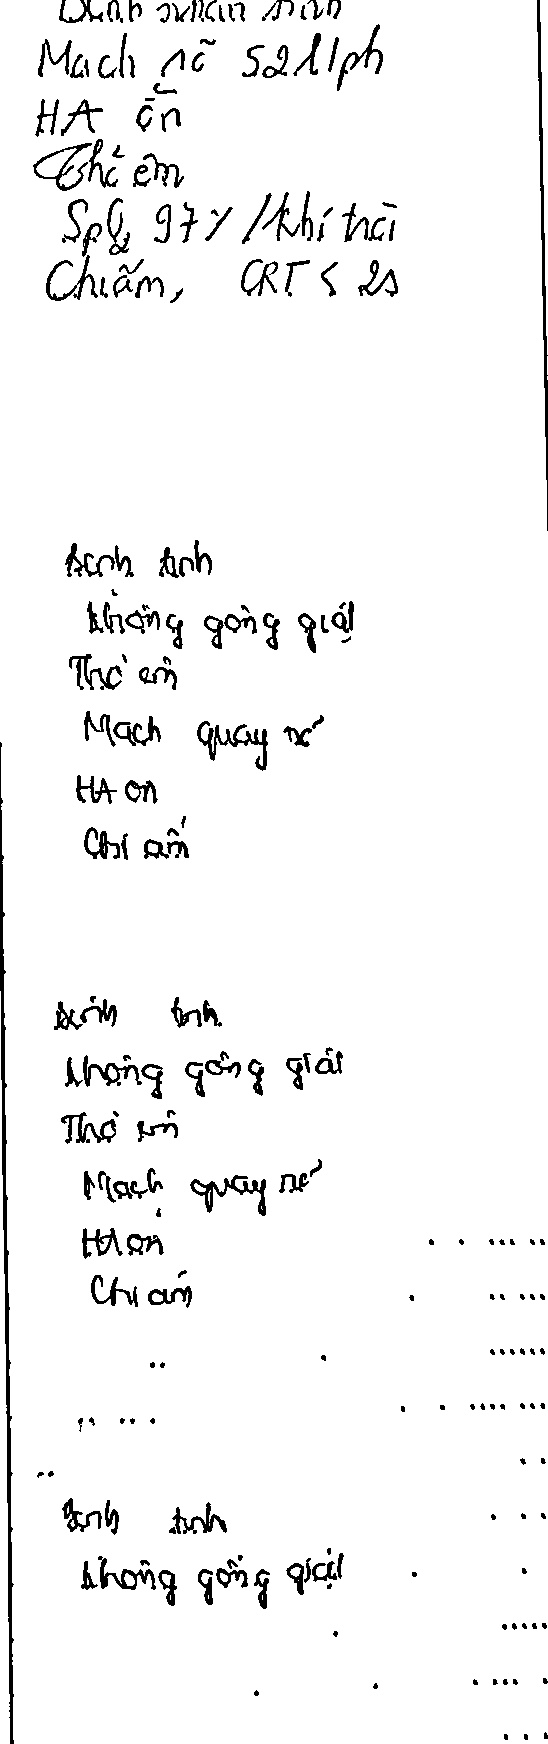 Bệnh nhân tỉnh
Mạch rõ 52 l/ph
HA ổn
Thở êm
SpO2 97% /khí trời
Chi ấm, CRT < 2s
Bệnh tỉnh
Không gồng giật
Thở êm
Mạch quay rõ
HA ổn
Chi ấm
Bệnh tỉnh
Không gồng giật
Thở êm
Mạch quay rõ
HA ổn
Chi ấm
Bệnh tỉnh
Không gồng giật